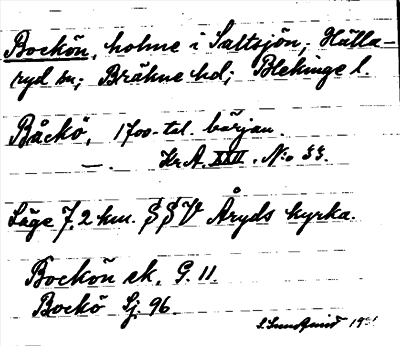 Bockön, holme i Saltsjön; Hälla-
ryd sn; Bräkne hd; Blekinge l.
Båckö, 1700-tal. början.
— . Kr A. XXII. N:o 33.
Läge 7,2 km. SSV Åryds kyrka.
Bockön ek. G. 11.
Bockö Sj. 96.
S. Lundqvist 19